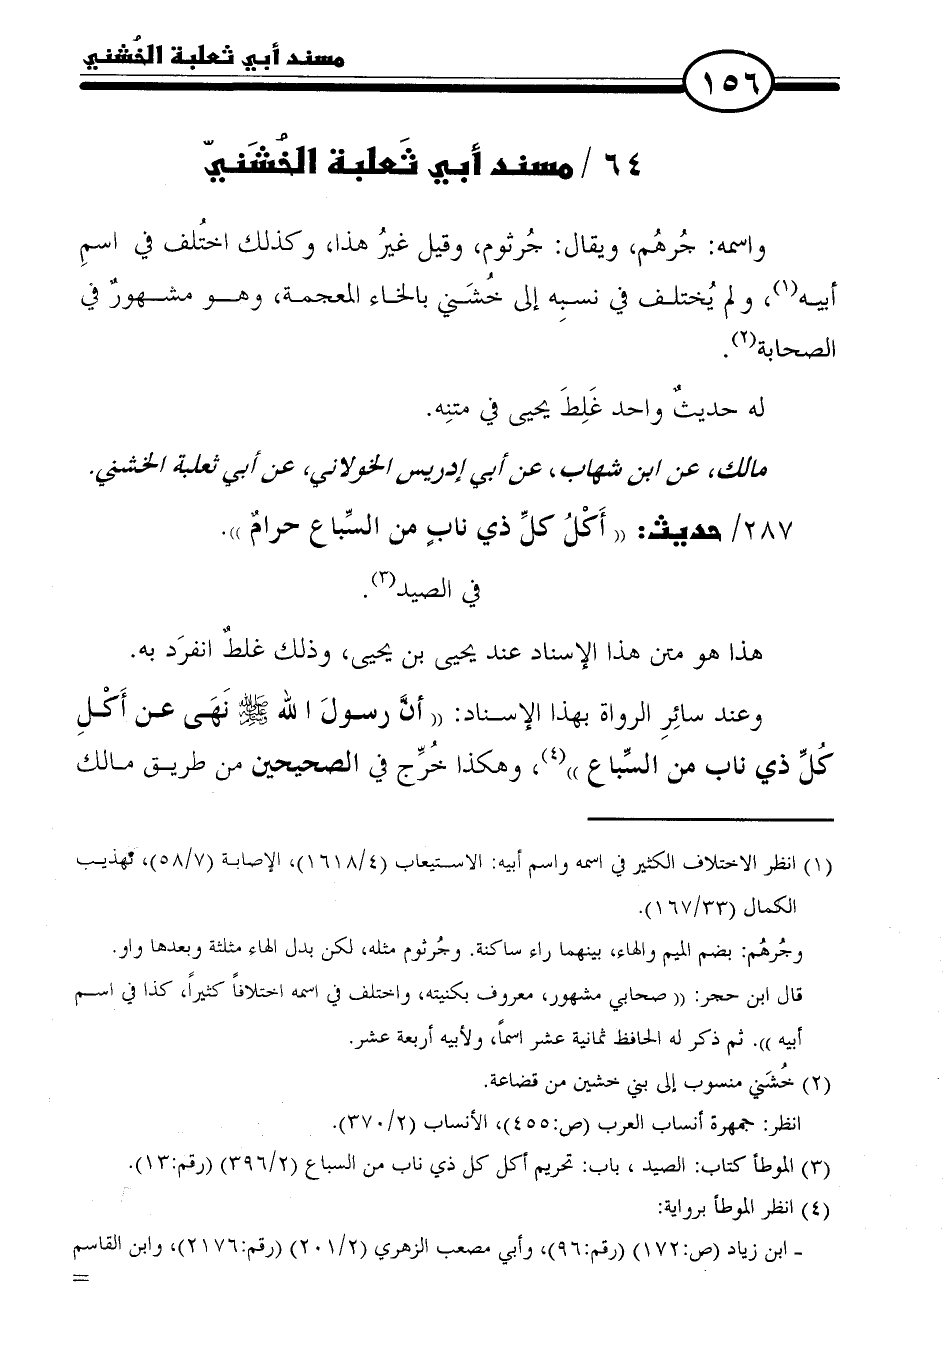 مسند أبي ثعلبة الخُشني
١٥٦
٦٤/ مسند أبي ثَعلبة الخُشَنيّ
واسمه: جُرهُم، ويقال: جُرثوم، وقيل غيرُ هذا، وكذلك اختُلف في اسمِ
أبيه(١)، ولم يُختلف في نسبِه إلى خُشَني بالخاء المعجمة، وهو مشهورٌ في
الصحابة(٢).
له حديثٌ واحد غَلِطَ يحيى في متنِه.
مالك، عن ابن شهاب، عن أبي إدريس الخولاني، عن أبي ثعلبة الخشني.
٢٨٧/ حديث: (( أَكْلُ كلِّ ذي نابٍ من السِّباع حرامٌ )).
في الصيد(٣).
هذا هو متن هذا الإسناد عند يحيى بن يحيى، وذلك غلطٌ انفرَد به.
وعند سائِرِ الرواة بهذا الإسناد: (( أنَّ رسولَ الله ﷺ نَهَى عن أَكْلِ
كُلِّ ذي ناب من السِّباع ))(٤)، وهكذا خُرِّج في الصحيحين من طريق مالك
(١) انظر الاختلاف الكثير في اسمه واسم أبيه: الاستيعاب (١٦١٨/٤)، الإصابة (٥٨/٧)، تهذيب
الكمال (١٦٧/٣٣).
وجُرهُم: بضم الميم والهاء، بينهما راء ساكنة. وجُرثوم مثله، لكن بدل الهاء مثلثة وبعدها واو.
قال ابن حجر: (( صحابي مشهور، معروف بكنيته، واختلف في اسمه اختلافاً كثيراً، كذا في اسم
أبيه )). ثم ذكر له الحافظ ثمانية عشر اسماً، ولأبيه أربعة عشر.
(٢) خُشَني منسوب إلى بني خشين من قضاعة.
انظر: جمهرة أنساب العرب (ص:٤٥٥)، الأنساب (٣٧٠/٢).
(٣) الموطأ كتاب: الصيد ، باب: تحريم أكل كل ذي ناب من السباع (٣٩٦/٢) (رقم:١٣).
(٤) انظر الموطأ برواية:
- ابن زياد (ص:١٧٢) (رقم:٩٦)، وأبي مصعب الزهري (٢٠١/٢) (رقم:٢١٧٦)، وابن القاسم
=